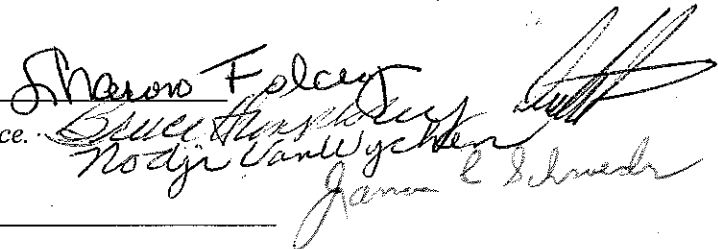 Sharon Folcey
ce. Bruce Humphrey
Nodji VanWychen
James C Schroeder